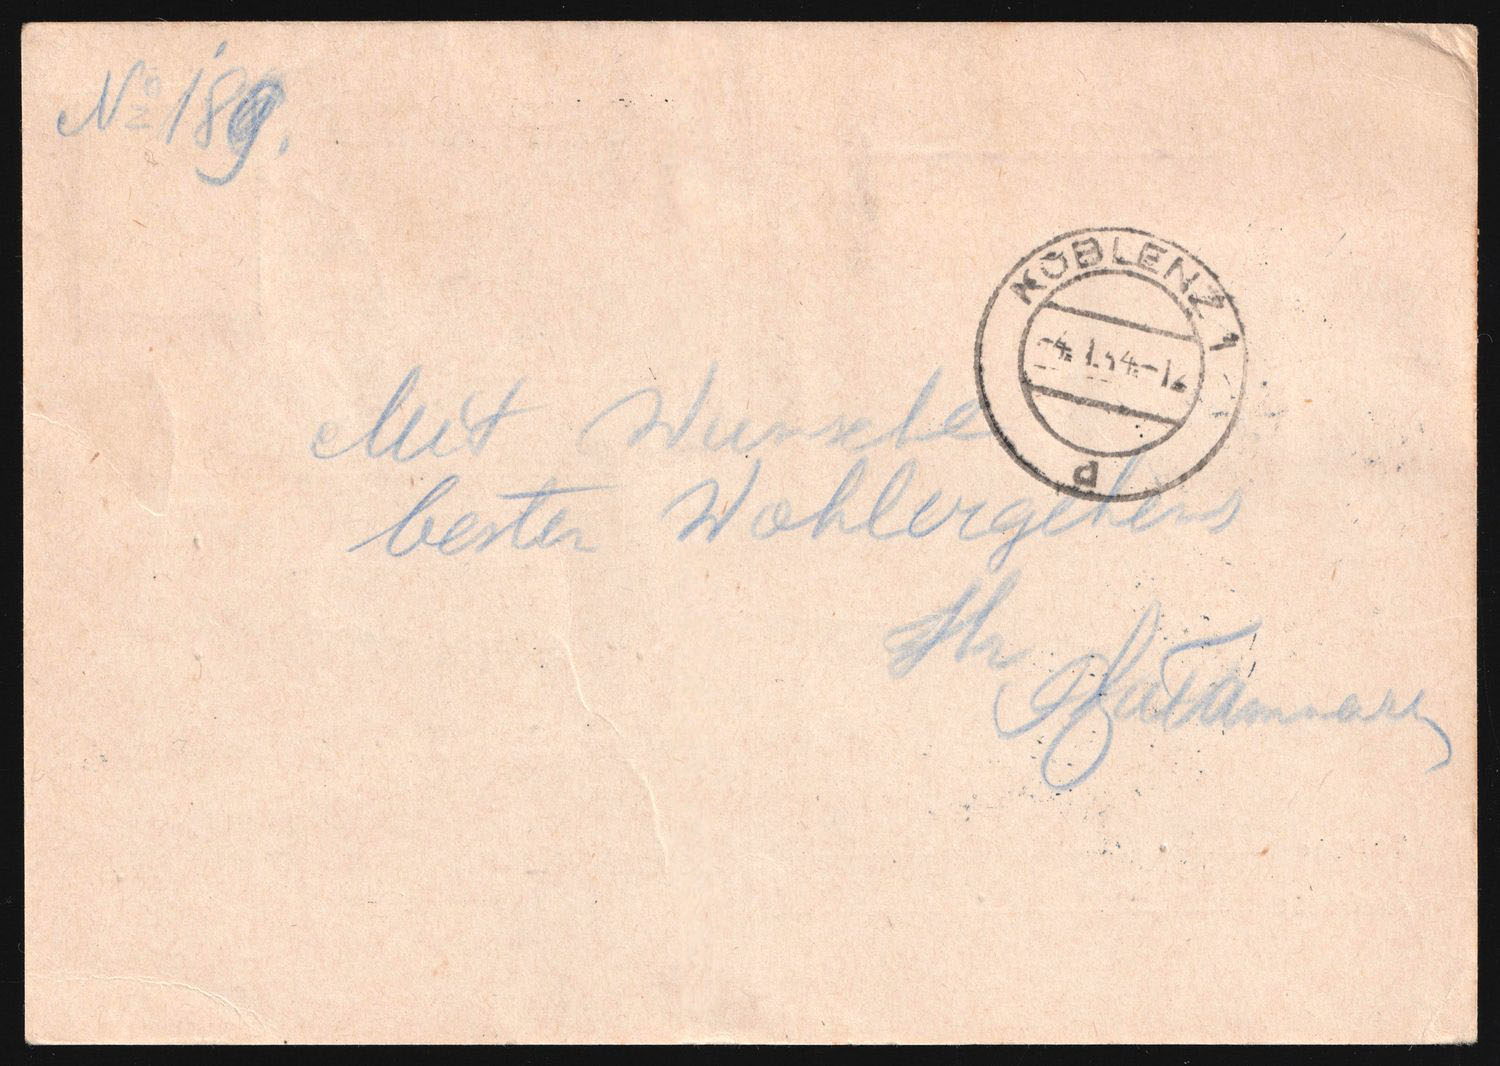 No 189.
KOBLENZ 1
-4. 1. 54.-12
d
Mit Wunsche
besten Wohlergehens
Ihr